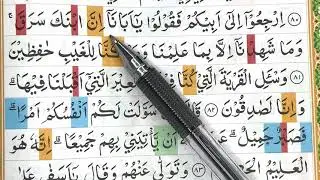 ٨٠ اِرْجِعُوْٓا اِلٰٓى اَبِيْكُمْ فَقُوْلُوْا يٰٓاَبَانَآ اِنَّ ابْنَكَ سَرَقَۚ
وَمَا شَهِدْنَآ اِلَّا بِمَا عَلِمْنَا وَمَا كُنَّا لِلْغَيْبِ حٰفِظِيْنَ
وَسْـَٔلِ الْقَرْيَةَ الَّتِيْ كُنَّا الَّتِيْٓ اَقْبَلْنَا فِيْهَاۗ
وَاِنَّا لَصٰدِقُوْنَ ٨٢ سَوَّلَتْ لَكُمْ اَنْفُسُكُمْ اَمْرًاۗ
فَصَبْرٌ جَمِيْلٌۗ اَنْ يَّأْتِيَنِيْ بِهِمْ جَمِيْعًاۗ اِنَّهٗ هُوَ
الْعَلِيْمُ ٨٣ وَتَوَلّٰى عَنْهُمْ وَقَالَ يٰٓاَسَفٰى عَلٰى